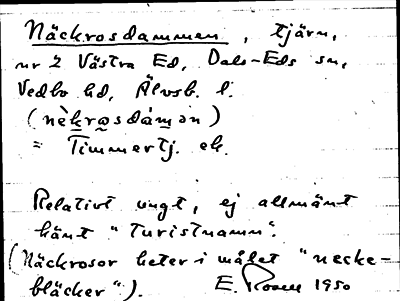 Näckrosdammen, tjärn,
nr 2 Västra Ed, Dals-Eds sn,
Vedbo hd, Älvsb. l.
(nèkrosdámən)
= Timmertj. ek.
Relativt ungt, ej allmänt
känt "turistnamn".
(Näckrosor heter i målet "necke-
bläcker"). E. Rosell 1950